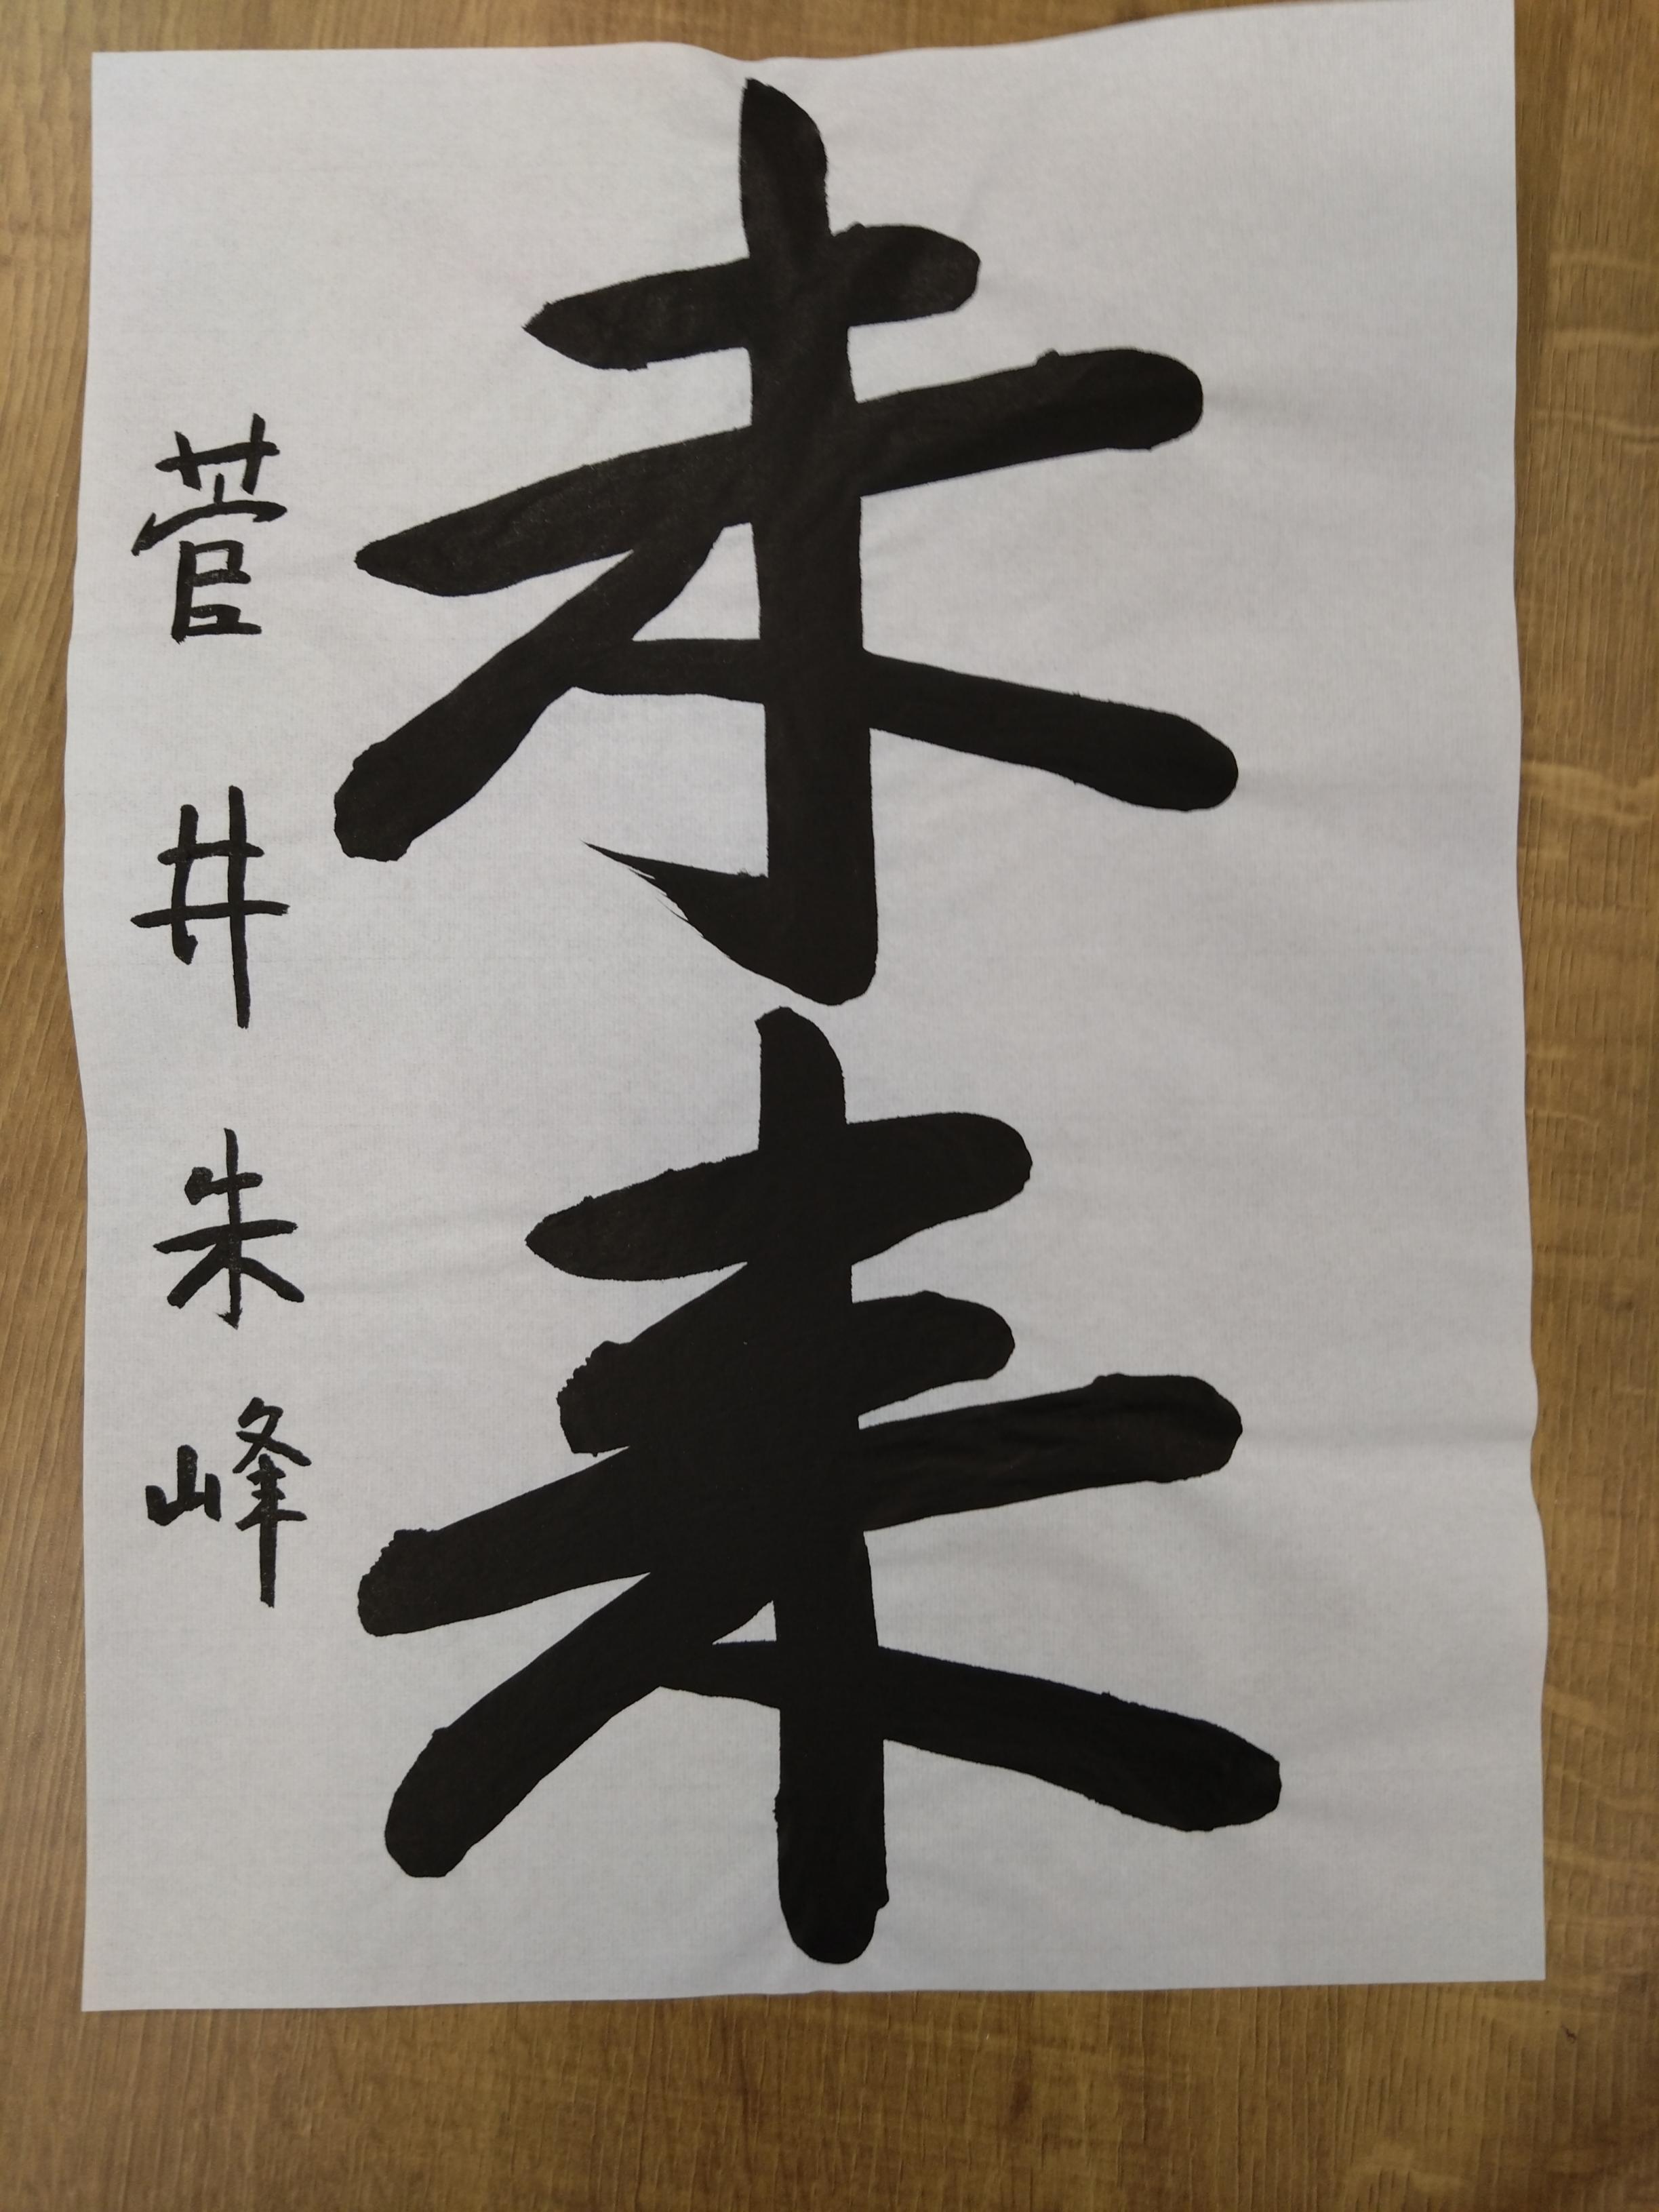 未来
菅井朱峰